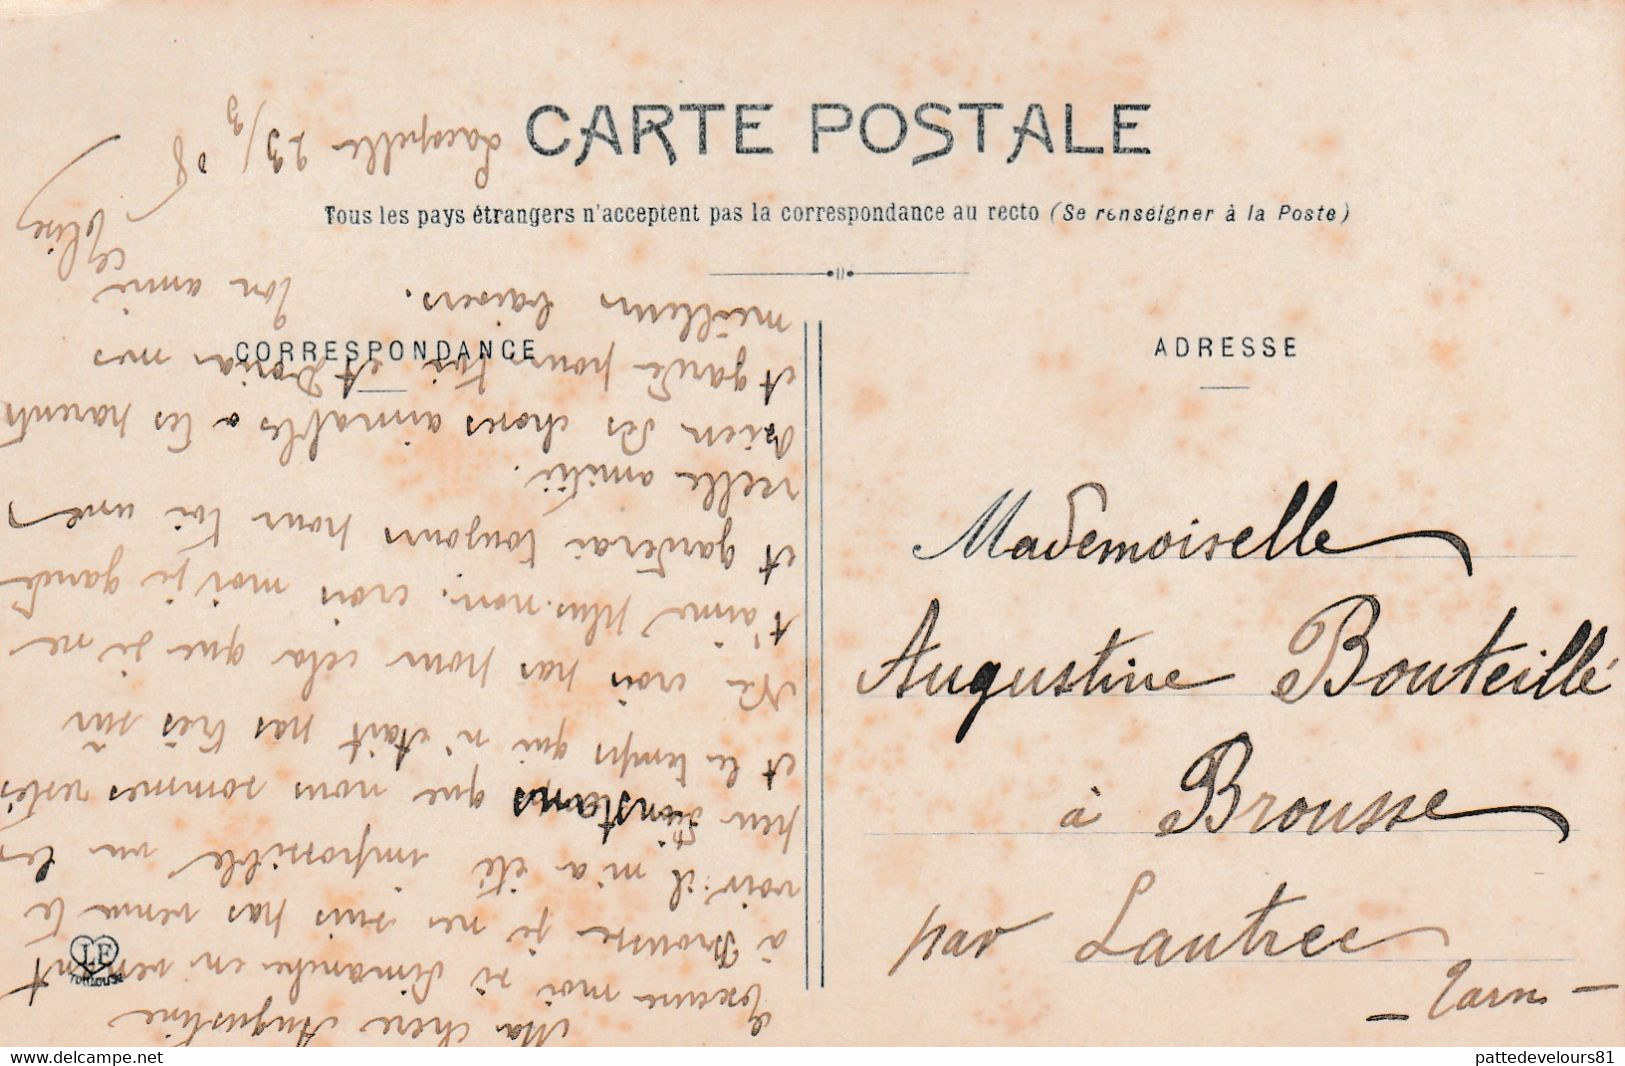 CARTE POSTALE
Tous les pays étrangers n'acceptent pas la correspondance au recto (Se renseigner à la Poste)
CORRESPONDANCE
ADRESSE
Mademoiselle
Augustine Bouteillé
à Brousse
par Lautrec
- Tarn -
Lacapelle 23/3 08
Ma chère Augustine
Excuse moi si dimanche en venant
à Brousse je ne suis pas venue te
voir: il m'a été impossible vu le
peu d'instants que nous sommes restés
et le temps qui n'était pas très sûr
Ne crois pas pour cela que je ne
t'aime plus. non; crois moi je garde
et garderai toujours pour toi une
réelle amitié.
Bien des choses aimables à tes parents
et garde pour toi et mes
meilleurs baisers. Ton amie
Elise
LF
TOULOUSE
https://www.delcampe.net
pattedevelours81